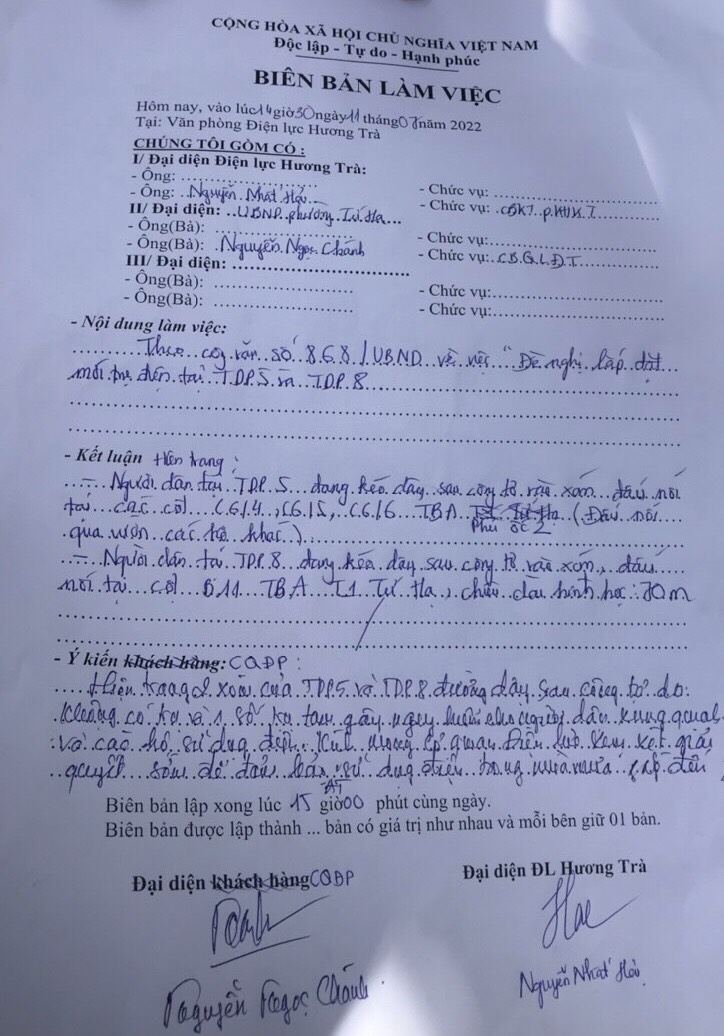 CỘNG HÒA XÃ HỘI CHỦ NGHĨA VIỆT NAM
Độc lập - Tự do - Hạnh phúc
BIÊN BẢN LÀM VIỆC
Hôm nay, vào lúc 14 giờ 30 ngày 11 tháng 07 năm 2022
Tại: Văn phòng Điện lực Hương Trà
CHÚNG TÔI GỒM CÓ :
I/ Đại diện Điện lực Hương Trà:
- Ông: ........................ - Chức vụ: ........................
- Ông: Nguyễn Nhất Hải - Chức vụ: CBKT
II/ Đại diện: UBND phường Tứ Hạ
- Ông(Bà): ........................ - Chức vụ:........................
- Ông(Bà): Nguyễn Ngọc Chánh - Chức vụ: CBQLĐT
III/ Đại diện: ........................
- Ông(Bà): ........................ - Chức vụ:........................
- Ông(Bà): ........................ - Chức vụ: ........................
- Nội dung làm việc:
Theo công văn số 868/UBND về việc "Đề nghị lắp đặt
mới trụ điện tại TDP.5 và TDP.8
- Kết luận Hiện trạng :
- Người dân tại TDP.5 đang kéo dây sau công tơ vào xóm đấu nối
tại các cột C6/4, C6/5, C6/6 TBA Phú Ốc 2 (Đấu nối
qua vườn các hộ khác)
- Người dân tại TDP.8 đang kéo dây sau công tơ vào xóm, đấu
nối tại cột B11 TBA T1 Tứ Hạ, chiều dài hình học: 70m
- Ý kiến khách hàng: CQĐP :
Hiện trạng 2 xóm của TDP5 và TDP.8 đường dây sau công tơ do
không có trụ và 1 số trụ tạm gây nguy hiểm cho người dân xung quanh
và các hộ sử dụng điện. Kính mong cơ quan Điện lực xem xét giải
quyết sớm để đảm bảo sử dụng điện trong mùa mưa sắp đến
AT
Biên bản lập xong lúc 15 giờ 00 phút cùng ngày.
Biên bản được lập thành ... bản có giá trị như nhau và mỗi bên giữ 01 bản.
Đại diện khách hàng CQĐP Đại diện ĐL Hương Trà
Nguyễn Ngọc Chánh Nguyễn Nhất Hải